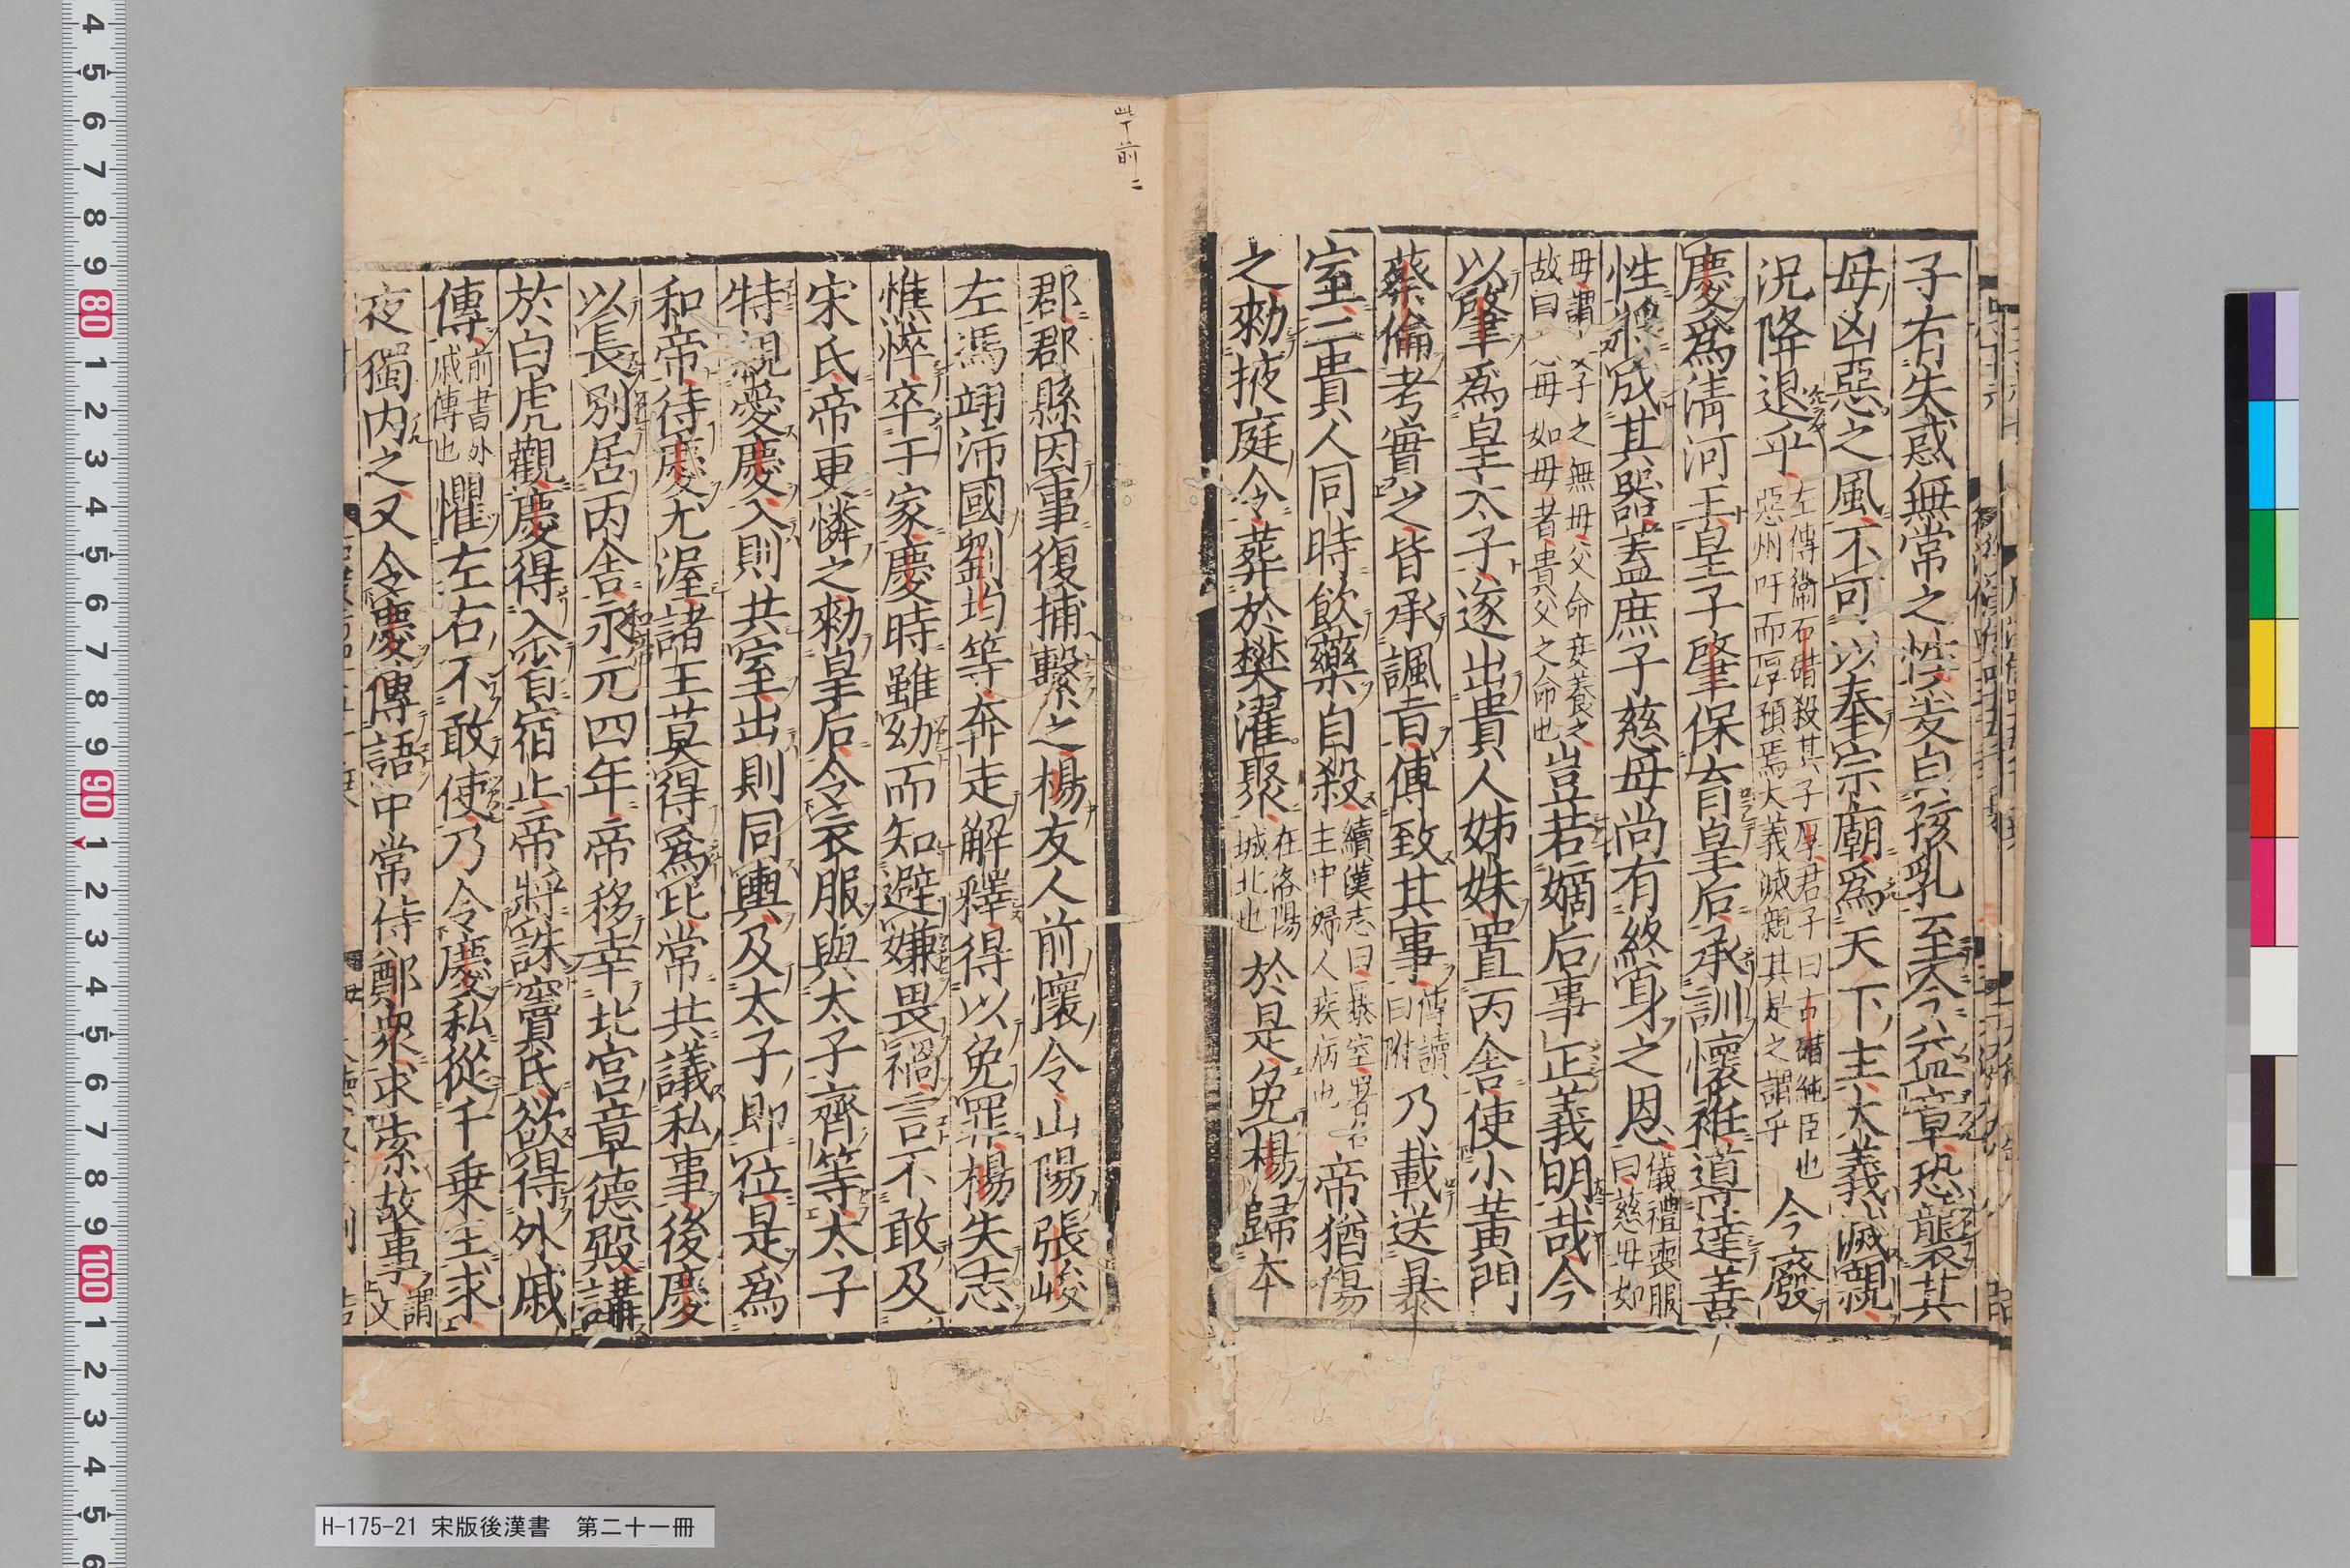 子有失惑無常之性爰自孩乳至今益章恐襲其
母凶惡之風不可以奉宗廟為天下主大義滅親
況降退乎左傳衞石碏殺其子厚君子曰石碏純臣也惡州吁而厚預焉大義滅親其是之謂乎今廢
慶為清河王皇子肇保育皇后承訓懷衽導達善
性將成其器蓋庶子慈母尚有終身之恩儀禮喪服曰慈母如
母謂子之無母父命妾養之故曰慈母如母者貴父之命也豈若嫡后事正義明哉今
以肇為皇太子遂出貴人姊妹置丙舍使小黃門
蔡倫考實之皆承諷旨傅致其事傅讀曰附乃載送暴
室二貴人同時飲藥自殺續漢志曰暴室署名主中婦人疾病也帝猶傷
之勑掖庭令葬於樊濯聚在洛陽城北也於是免楊歸本
郡郡縣因事復捕繫之楊友人前懷令山陽張峻
左馮翊沛國劉均等奔走解釋得以免罪楊失志
憔悴卒于家慶時雖幼而知避嫌畏禍言不敢及
宋氏帝更憐之勑皇后令衣服與太子齊等太子
特親愛慶入則共室出則同輿及太子即位是為
和帝待慶尤渥諸王莫得為比常共議私事後慶
以長別居丙舍永元四年帝移幸北宮章德殿講
於白虎觀慶得入省宿止帝將誅竇氏欲得外戚
傳前書外戚傳也懼左右不敢使乃令慶私從千乗王求
夜獨内之又令慶傳語中常侍鄭衆求索故事謂文
H-175-21 宋版後漢書 第二十一冊